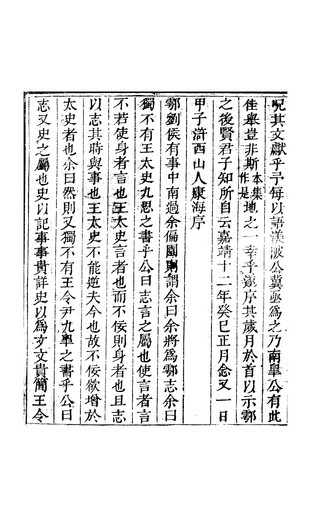 况其文獻乎予每以語渼陂公冀亟為之乃南皐公有此
佳舉豈非斯本集作是地之一幸乎遂序其歲月於首以示鄠
之後賢君子知所自云嘉靖十二年癸巳正月念又一日
甲子滸西山人康海序
鄠劉侯有事中南過余偏園則謂余曰余將為鄠志余曰
獨不有王太史九思之書乎公曰志言之屬也使言者言也
不若使身者言也王太史言者也而不佞則身者也且志
以志其時與事也王太史不能逆夫今也故不佞欲增於
太史者也余曰然則又獨不有王令尹九皐之書乎公曰
志又史之屬也史以記事事貴詳史以為文文貴簡王令